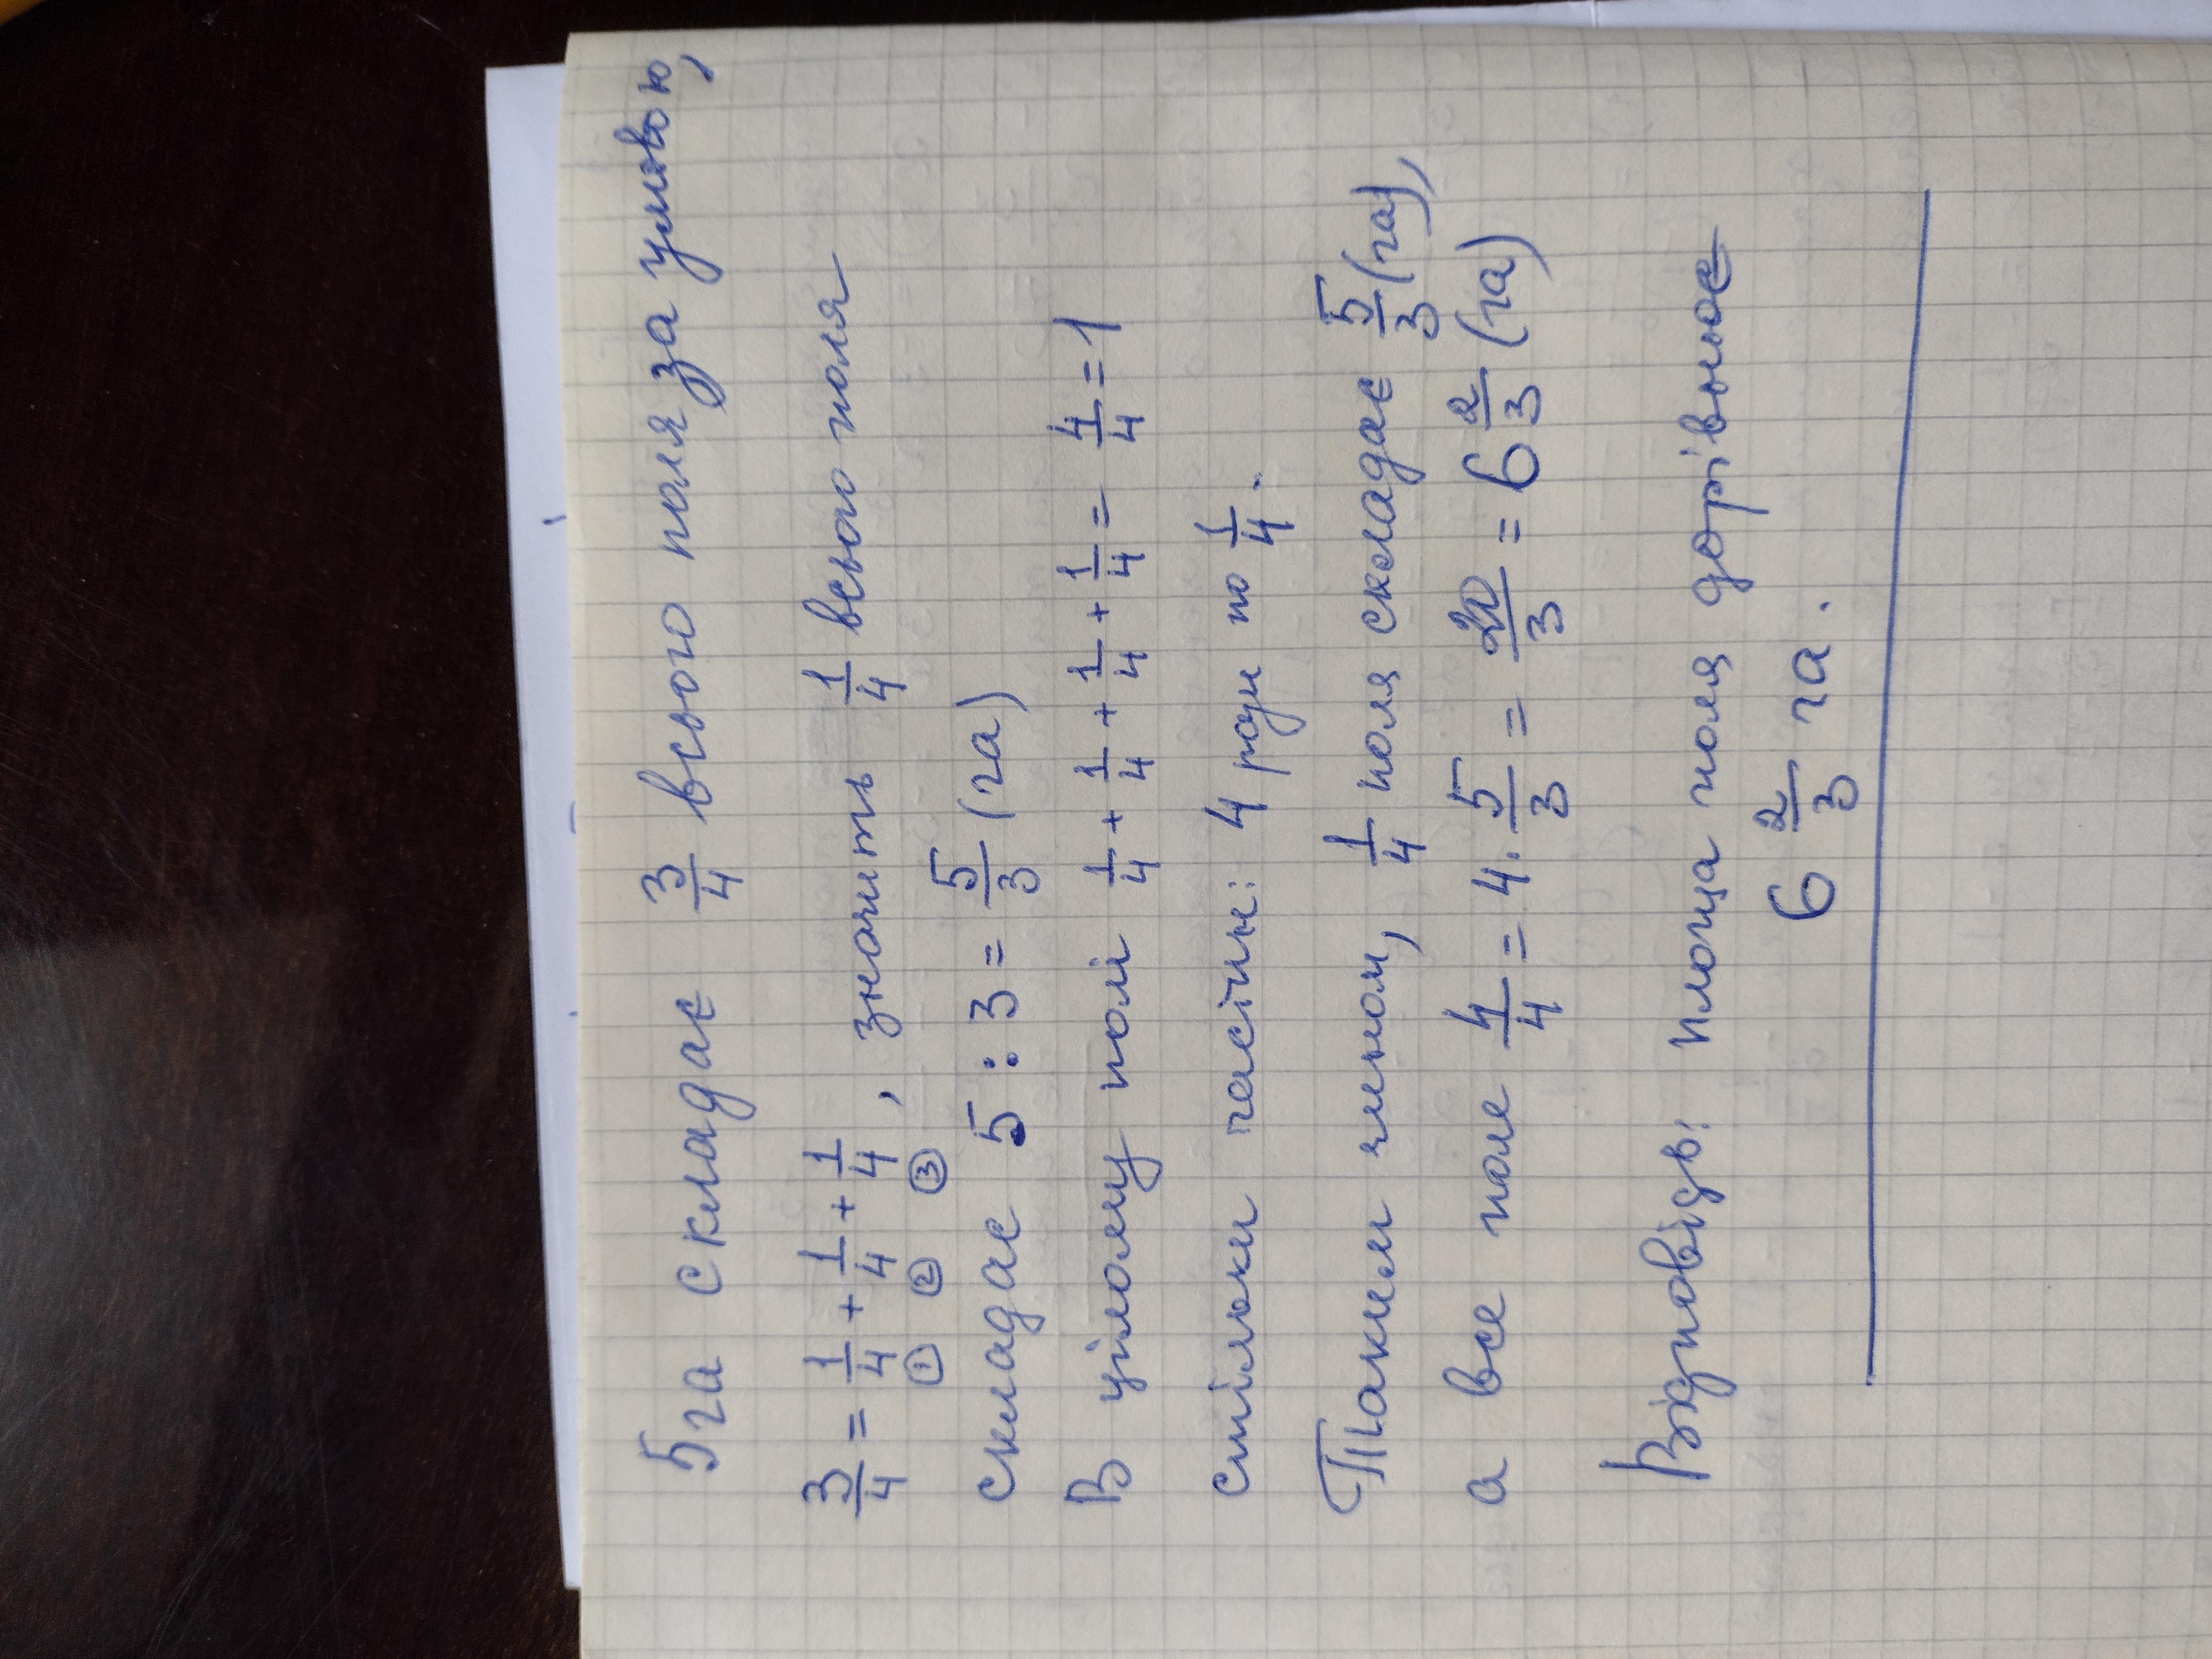 5га складає 3/4 всього поля за умовою,
3/4 = 1/4 + 1/4 + 1/4, значить 1/4 всього поля
① ② ③
складає 5 : 3 = 5/3 (га)
В цілому полі 1/4 + 1/4 + 1/4 + 1/4 = 4/4 = 1
стільки частин: 4 рази по 1/4.
Таким чином, 1/4 поля складає 5/3 (га),
а все поле 4/4 = 4 · 5/3 = 20/3 = 6 2/3 (га)
Відповідь: площа поля дорівнює
6 2/3 га.